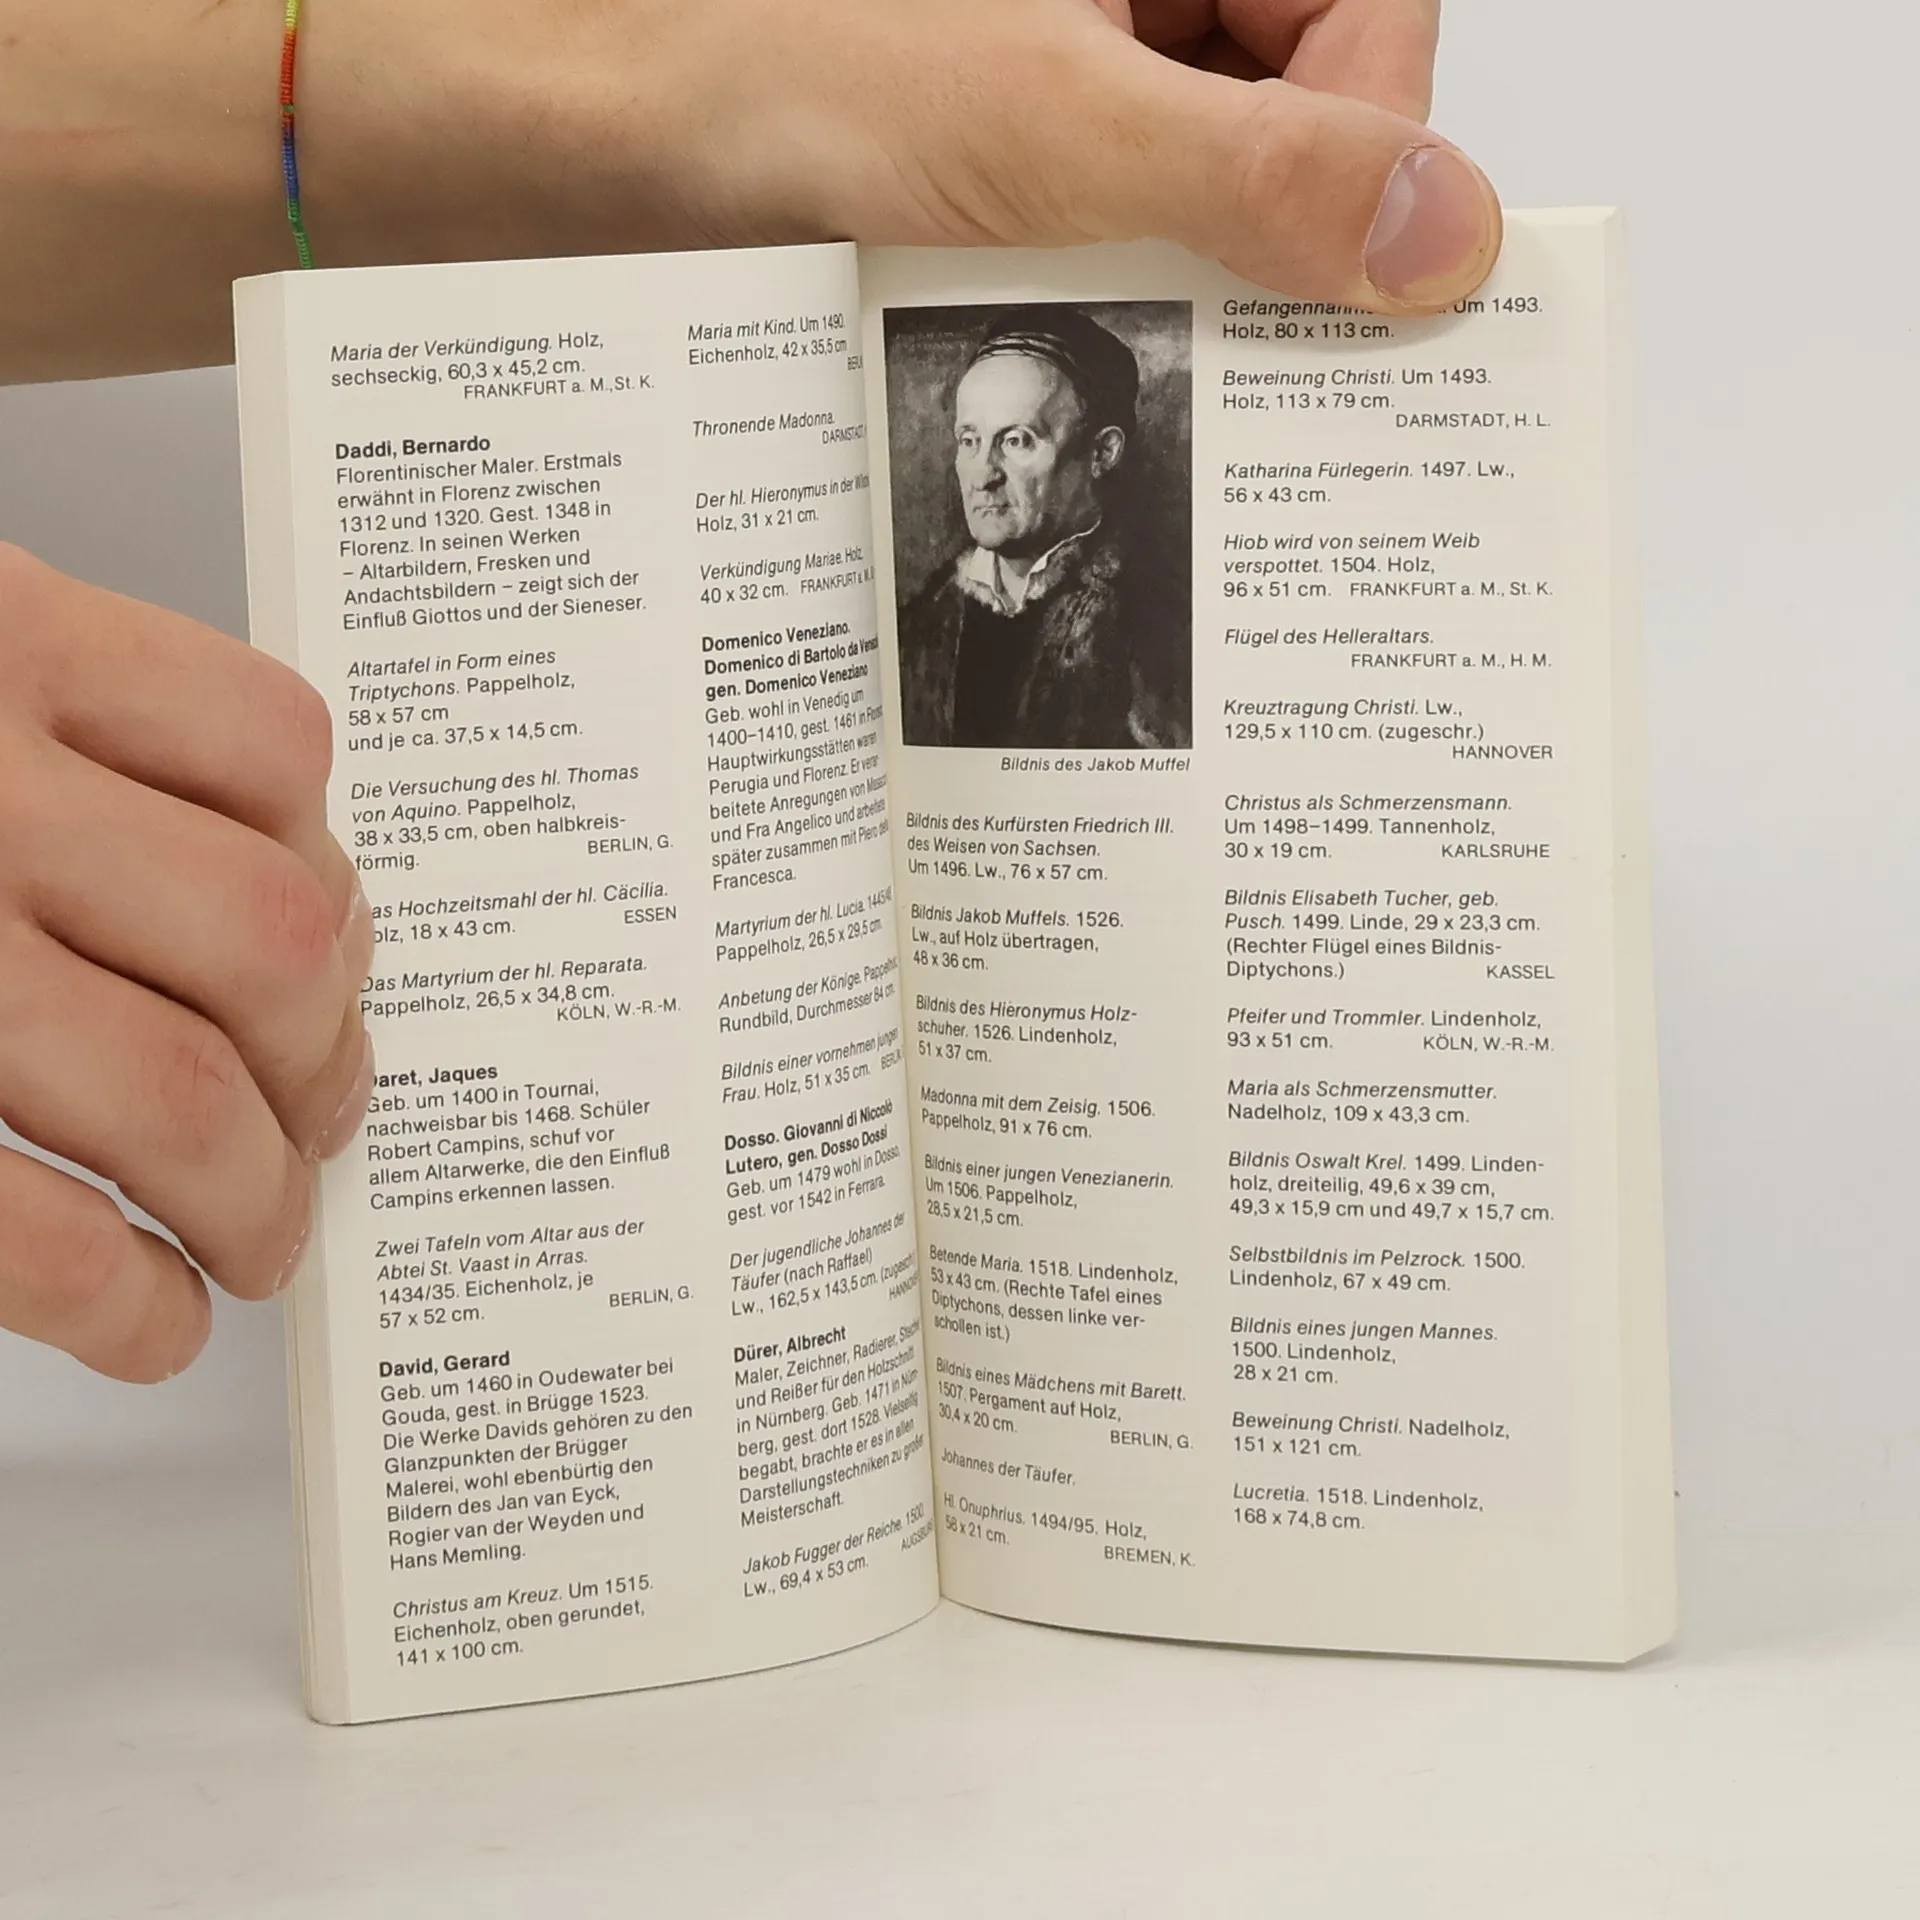 Maria der Verkündigung. Holz,
sechseckig, 60,3 x 45,2 cm.
FRANKFURT a. M.,St. K.
Daddi, Bernardo
Florentinischer Maler. Erstmals
erwähnt in Florenz zwischen
1312 und 1320. Gest. 1348 in
Florenz. In seinen Werken
– Altarbildern, Fresken und
Andachtsbildern – zeigt sich der
Einfluß Giottos und der Sieneser.
Altartafel in Form eines
Triptychons. Pappelholz,
58 x 57 cm
und je ca. 37,5 x 14,5 cm.
Die Versuchung des hl. Thomas
von Aquino. Pappelholz,
38 x 33,5 cm, oben halbkreis-
förmig. BERLIN, G.
as Hochzeitsmahl der hl. Cäcilia.
olz, 18 x 43 cm. ESSEN
Das Martyrium der hl. Reparata.
Pappelholz, 26,5 x 34,8 cm.
KÖLN, W.-R.-M.
aret, Jaques
Geb. um 1400 in Tournai,
nachweisbar bis 1468. Schüler
Robert Campins, schuf vor
allem Altarwerke, die den Einfluß
Campins erkennen lassen.
Zwei Tafeln vom Altar aus der
Abtei St. Vaast in Arras.
1434/35. Eichenholz, je
57 x 52 cm. BERLIN, G.
David, Gerard
Geb. um 1460 in Oudewater bei
Gouda, gest. in Brügge 1523.
Die Werke Davids gehören zu den
Glanzpunkten der Brügger
Malerei, wohl ebenbürtig den
Bildern des Jan van Eyck,
Rogier van der Weyden und
Hans Memling.
Christus am Kreuz. Um 1515.
Eichenholz, oben gerundet,
141 x 100 cm.
Maria mit Kind. Um 1490.
Eichenholz, 42 x 35,5 cm
Thronende Madonna.
DARMSTADT
Der hl. Hieronymus in der
Holz, 31 x 21 cm.
Verkündigung Mariae. Holz,
40 x 32 cm. FRANKFURT a. M.
Domenico Veneziano.
Domenico di Bartolo da
gen. Domenico Veneziano
Geb. wohl in Venedig um
1400–1410, gest. 1461 in
Hauptwirkungsstätten waren
Perugia und Florenz. Er verar-
beitete Anregungen von
und Fra Angelico und arbeitete
später zusammen mit Piero
Francesca.
Martyrium der hl. Lucia.
Pappelholz, 26,5 x 29,5 cm.
Anbetung der Könige.
Rundbild, Durchmesser 84 cm.
Bildnis einer vornehmen jungen
Frau. Holz, 51 x 35 cm.
Dosso. Giovanni di Niccolò
Lutero, gen. Dosso Dossi
Geb. um 1479 wohl in Dosso,
gest. vor 1542 in Ferrara.
Der jugendliche Johannes der
Täufer (nach Raffael)
Lw., 162,5 x 143,5 cm.
Dürer, Albrecht
Maler, Zeichner, Radierer,
und Reißer für den Holzschnitt.
in Nürnberg. Geb. 1471 in Nürn-
berg, gest. dort 1528. Vielseitig
begabt, brachte er es in allen
Darstellungstechniken zu großer
Meisterschaft.
Jakob Fugger der Reiche. 1500
Lw., 69,4 x 53 cm.
Bildnis des Jakob Muffel
Bildnis des Kurfürsten Friedrich III.
des Weisen von Sachsen.
Um 1496. Lw., 76 x 57 cm.
Bildnis Jakob Muffels. 1526.
Lw., auf Holz übertragen,
48 x 36 cm.
Bildnis des Hieronymus Holz-
schuher. 1526. Lindenholz,
51 x 37 cm.
Madonna mit dem Zeisig. 1506.
Pappelholz, 91 x 76 cm.
Bildnis einer jungen Venezianerin.
Um 1506. Pappelholz,
28,5 x 21,5 cm.
Betende Maria. 1518. Lindenholz,
53 x 43 cm. (Rechte Tafel eines
Diptychons, dessen linke ver-
schollen ist.)
Bildnis eines Mädchens mit Barett.
1507. Pergament auf Holz,
30,4 x 20 cm.
BERLIN, G.
Johannes der Täufer.
Hl. Onuphrius. 1494/95. Holz,
58 x 21 cm.
BREMEN, K.
Um 1493.
Holz, 80 x 113 cm.
Beweinung Christi. Um 1493.
Holz, 113 x 79 cm.
DARMSTADT, H. L.
Katharina Fürlegerin. 1497. Lw.,
56 x 43 cm.
Hiob wird von seinem Weib
verspottet. 1504. Holz,
96 x 51 cm. FRANKFURT a. M., St. K.
Flügel des Helleraltars.
FRANKFURT a. M., H. M.
Kreuztragung Christi. Lw.,
129,5 x 110 cm. (zugeschr.)
HANNOVER
Christus als Schmerzensmann.
Um 1498–1499. Tannenholz,
30 x 19 cm. KARLSRUHE
Bildnis Elisabeth Tucher, geb.
Pusch. 1499. Linde, 29 x 23,3 cm.
(Rechter Flügel eines Bildnis-
Diptychons.) KASSEL
Pfeifer und Trommler. Lindenholz,
93 x 51 cm. KÖLN, W.-R.-M.
Maria als Schmerzensmutter.
Nadelholz, 109 x 43,3 cm.
Bildnis Oswalt Krel. 1499. Linden-
holz, dreiteilig, 49,6 x 39 cm,
49,3 x 15,9 cm und 49,7 x 15,7 cm.
Selbstbildnis im Pelzrock. 1500.
Lindenholz, 67 x 49 cm.
Bildnis eines jungen Mannes.
1500. Lindenholz,
28 x 21 cm.
Beweinung Christi. Nadelholz,
151 x 121 cm.
Lucretia. 1518. Lindenholz,
168 x 74,8 cm.